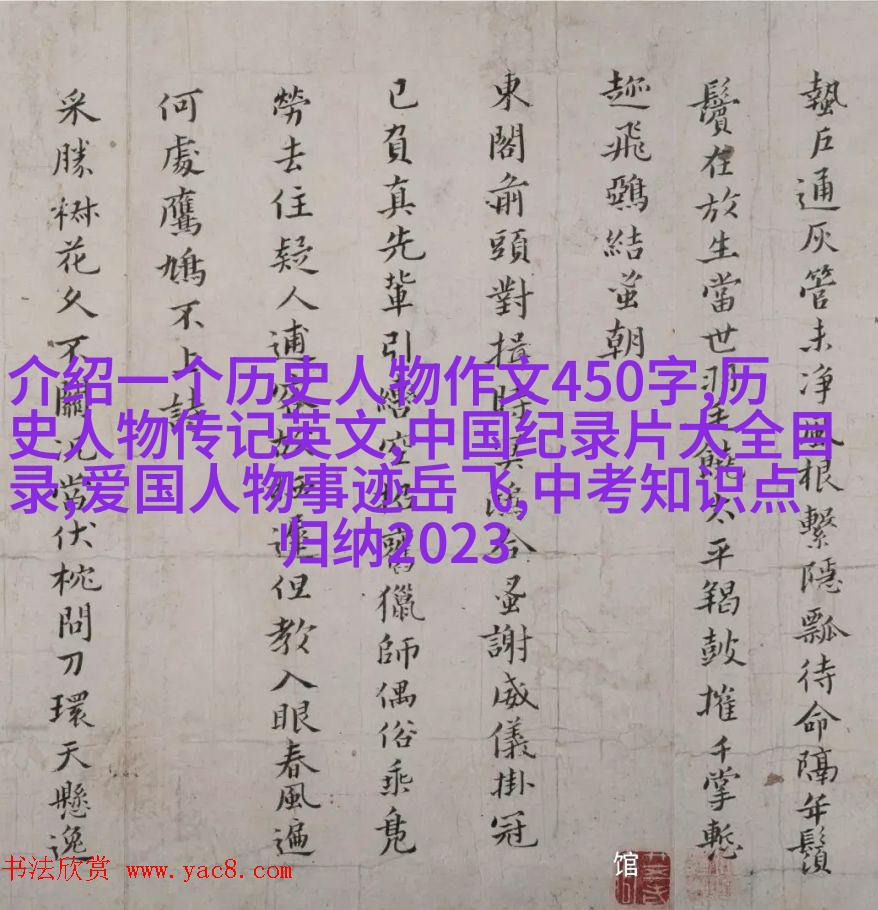 蟄戶通灰管未净風根繫隱瓢待命隔年鬚
鬢在放生當世太平羯鼓摧千掌慙
飛鷃結蚤朝
東閣前頭對揖時今蚤謝威儀掛冠
已負真先軰引空舊獵師偶俗乘鳬
勞去住疑人逋但教入眼春風遍
何處鷹鳩不上詩
采勝花久不關況當伏枕問刀環天懸逸
介绍一个历史人物作文450字,历
史人物传记英文,中国纪录片大全目
录,爱国人物事迹岳飞,中考知识点
归纳2023
馆
书法欣赏 www.yac8.com